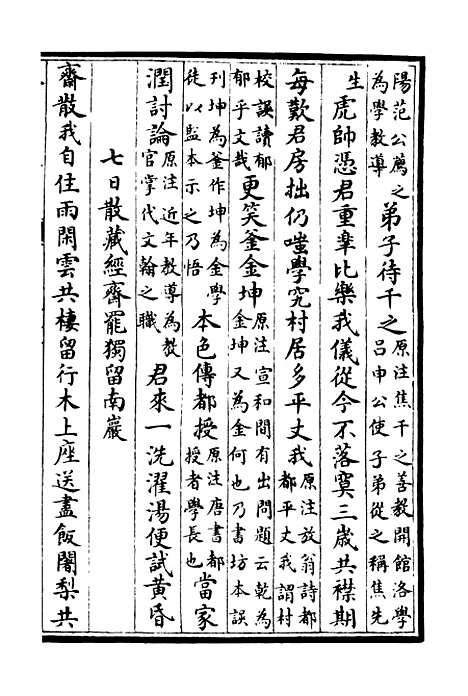 陽范公薦之為學教導弟子待千之原注焦千之善教開館洛學呂申公使子弟從之稱焦先
生虎帥憑君重臯比樂我儀從今不落寞三歲共襟期
每歎君房拙仍嗤學究村居多平丈我原注放翁詩都都平丈我謂村
校誤讀郁郁乎文哉更笑釜金坤原注宣和間有出問題云乾為金坤又為金何也乃書坊本誤
刊坤為釜作坤為金學徒以監本示之乃悟本色傳都授原注唐書都授者學長也當家
潤討論原注近年教導為教官掌代文翰之職君來一洗濯湯便試黄昏
七日散藏經齋罷獨留南巖
齋散我自住雨閑雲共棲留行木上座送盡飯闍梨共